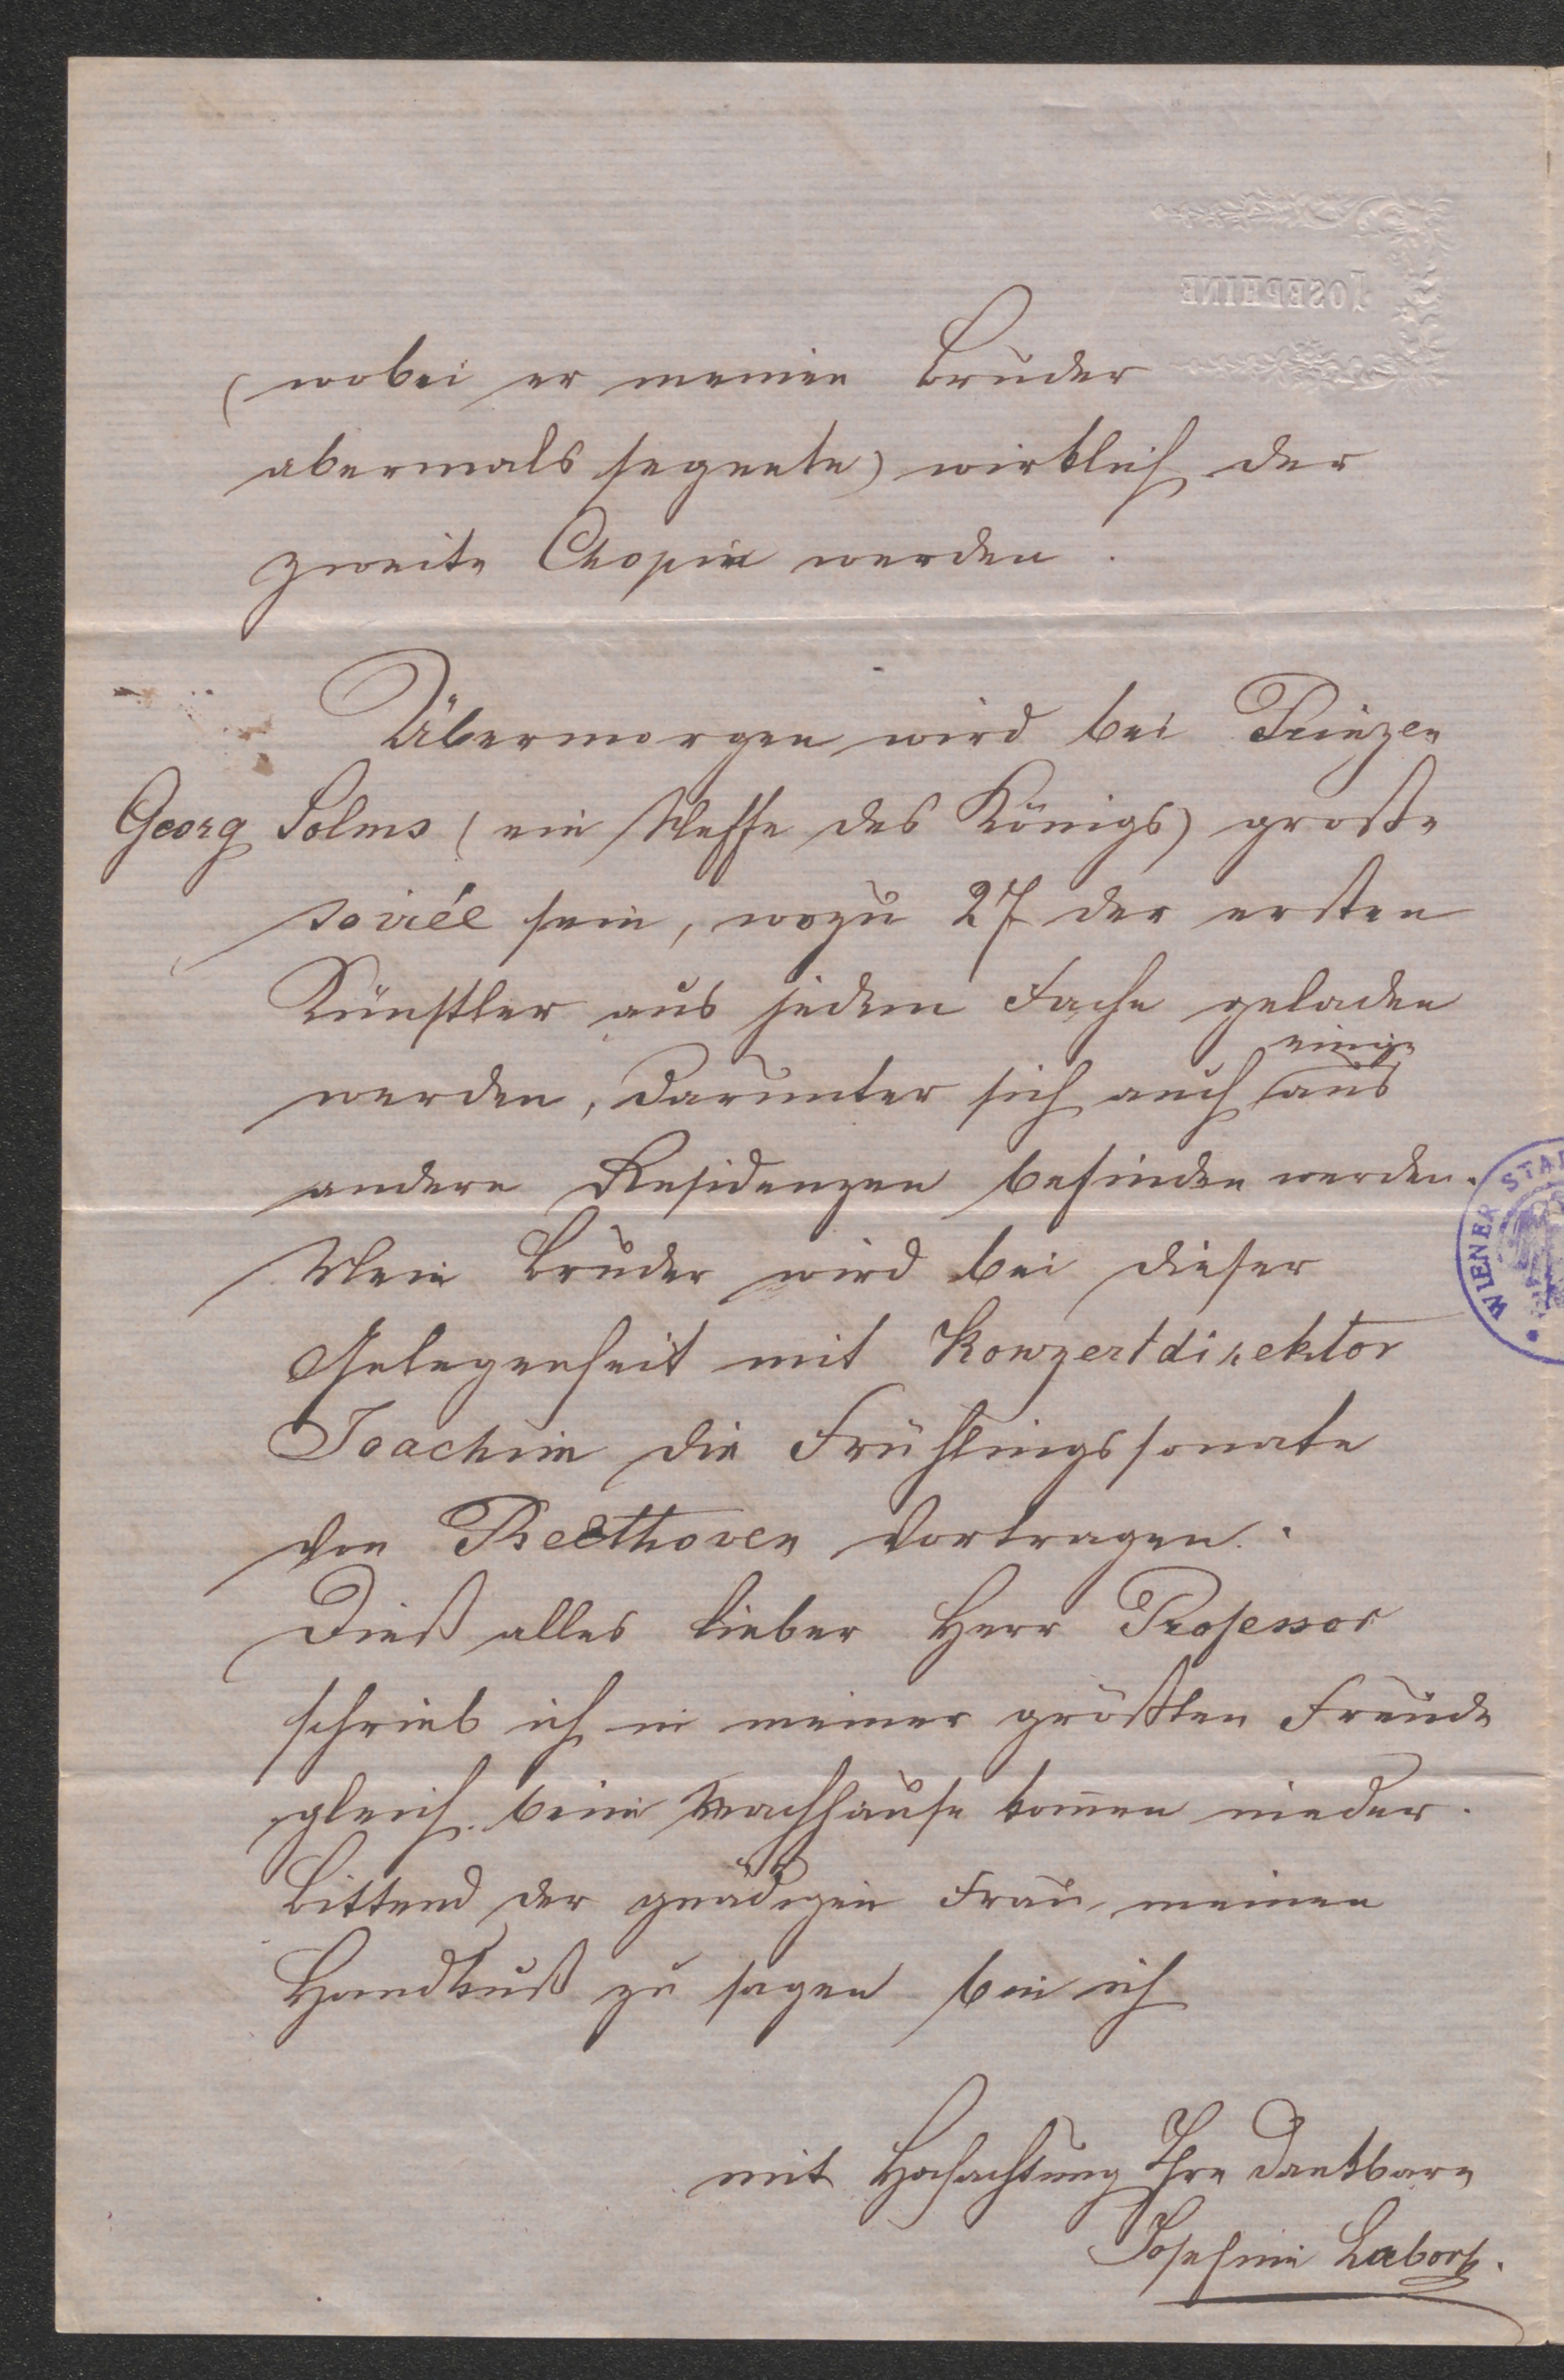 JOSEPHINE
(wobei er meinen Bruder
abermals segnete) wirklich der
zweite Chopin werden.
Übermorgen wird bei Prinzen
Georg Solms (ein Neffe des Königs) große
soirée sein, wozu 27 der ersten
Künstler aus jedem Fache geladen
einige
werden, darunter sich auch aus
andere Residenzen befinden werden.
Mein Bruder wird bei dieser
Gelegenheit mit Konzertdirektor
Joachim die Frühlingssonate
von Beethoven vortragen.
Dieß alles lieber Herr Professor
schrieb ich in meiner größten Freude
gleich beim nachhause komen nieder.
Bittend der gnädigen Frau meinen
Handkuß zu sagen bin ich
mit Hochachtung Ihre dankbare
Josefine Labor.
WIENER STA